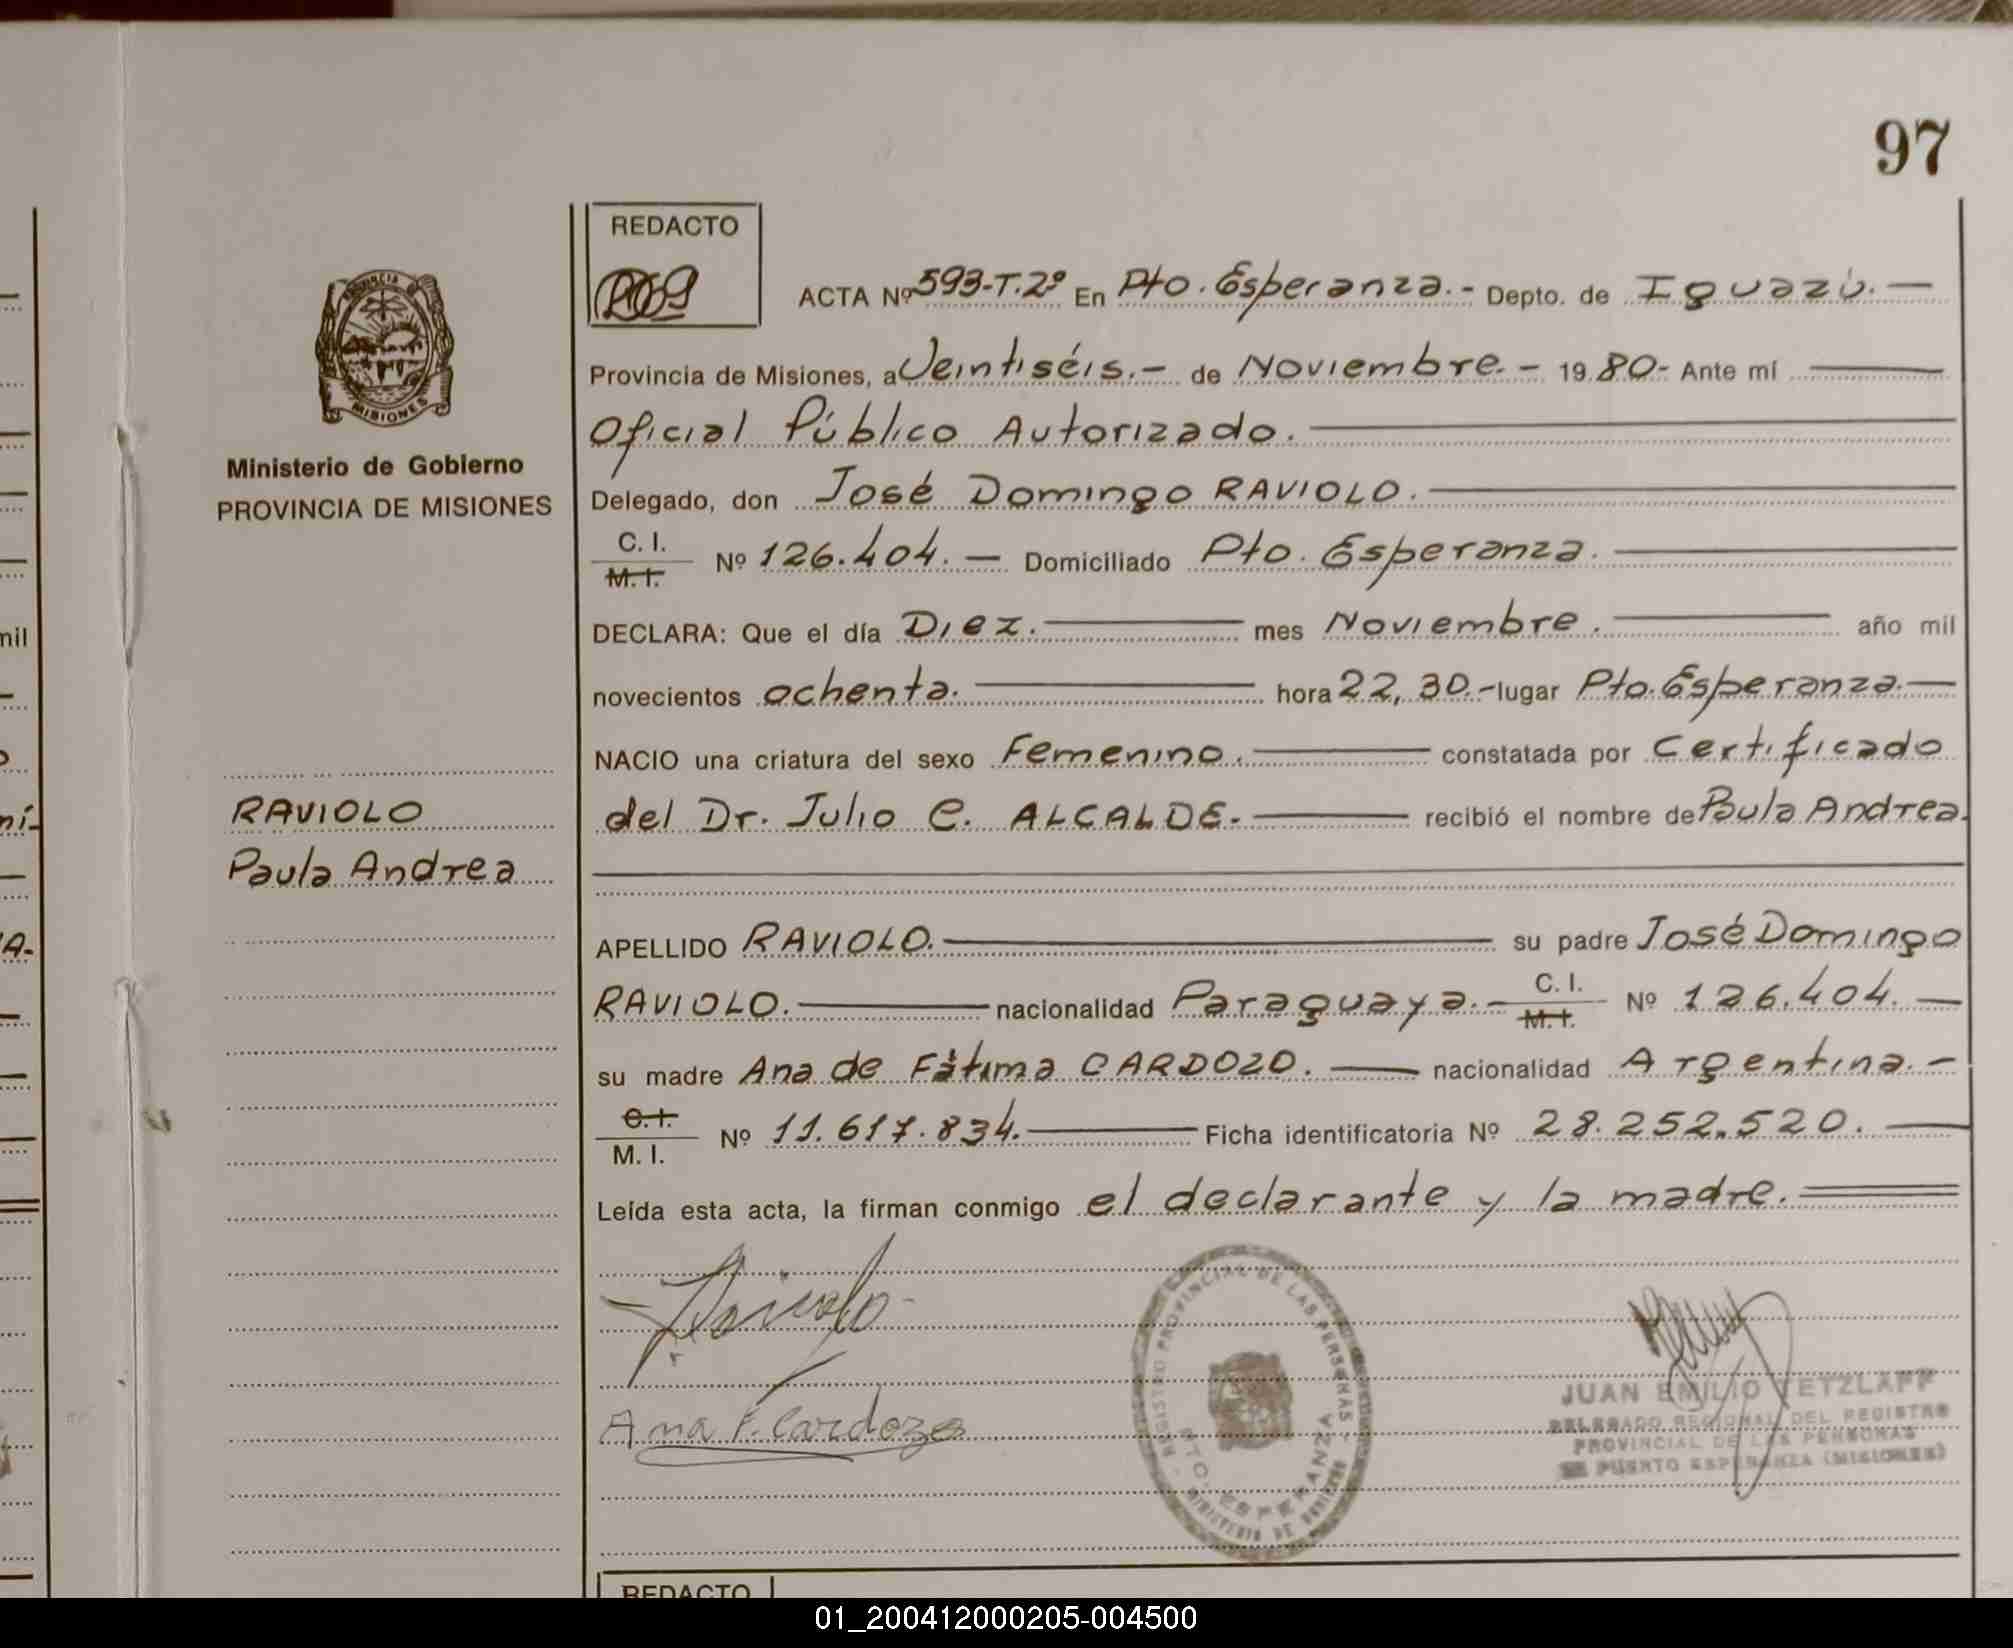 97
REDACTO
ACTA Nº 593-T.2º En Pto. Esperanza.- Depto. de Iguazú.—
Provincia de Misiones, a Veintiséis.- de Noviembre.- 1980.- Ante mí
Oficial Público Autorizado.
Delegado, don José Domingo RAVIOLO.
C. I.
M. I.
Nº 126.404.— Domiciliado Pto. Esperanza.
DECLARA: Que el día Diez. mes Noviembre. año mil
novecientos ochenta. hora 22,30.- lugar Pto. Esperanza.—
NACIO una criatura del sexo Femenino. constatada por Certificado
del Dr. Julio C. ALCALDE.- recibió el nombre de Paula Andrea.
APELLIDO RAVIOLO. su padre José Domingo
RAVIOLO. nacionalidad Paraguaya.- C. I. M. I. Nº 126.404.—
su madre Ana de Fátima CARDOZO. nacionalidad Argentina.-
C. I.
M. I.
Nº 11.617.834. Ficha identificatoria Nº 28.252.520.
Leída esta acta, la firman conmigo el declarante y la madre.
PROVINCIA DE
MISIONES
Ministerio de Gobierno
PROVINCIA DE MISIONES
RAVIOLO
Paula Andrea
Raviolo
Ana F. Cardozo
REGISTRO PROVINCIAL DE LAS PERSONAS
PTO. ESPERANZA
MINISTERIO DE GOBIERNO
JUAN EMILIO TETZLAFF
DELEGADO REGIONAL DEL REGISTRO
PROVINCIAL DE LAS PERSONAS
PUERTO ESPERANZA (MISIONES)
REDACTO
mil
mí-
A-
01_200412000205-004500